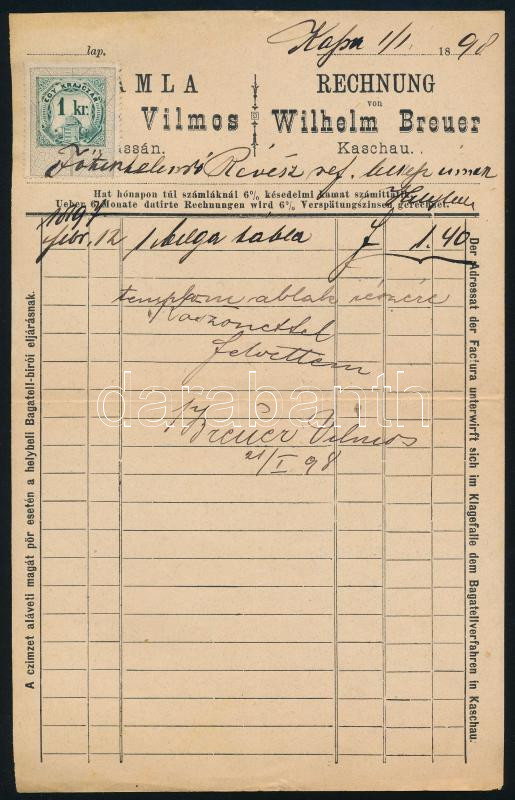 lap.
Kassa 1/1. 1898
EGY KRAJCZÁR
1 kr.
MLA
Vilmos
assán.
RECHNUNG
von
Wilhelm Breuer
Kaschau.
Révész ref.
Hat hónapon túl számláknál 6% késedelmi kamat számíttatik.
Ueber 6 Monate datirte Rechnungen wird 6% Verspätungszinsen gerechnet.
1897
febr. 12 1 belga tábla f 1.40
templom ablak részére
Köszönettel
felvettem
Breuer Vilmos
21/I 98
A czimzet aláveti magát pör esetén a helybeli Bagatell-birói eljárásnak.
Der Adressat der Factura unterwirft sich im Klagefalle dem Bagatellverfahren in Kaschau.
darabanth